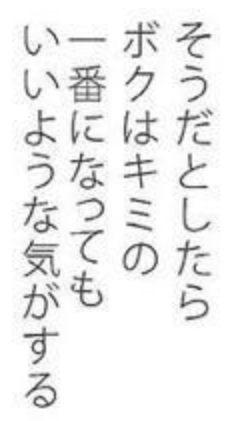 そうだとしたら
ボクはキミの
一番になっても
いいような気がする